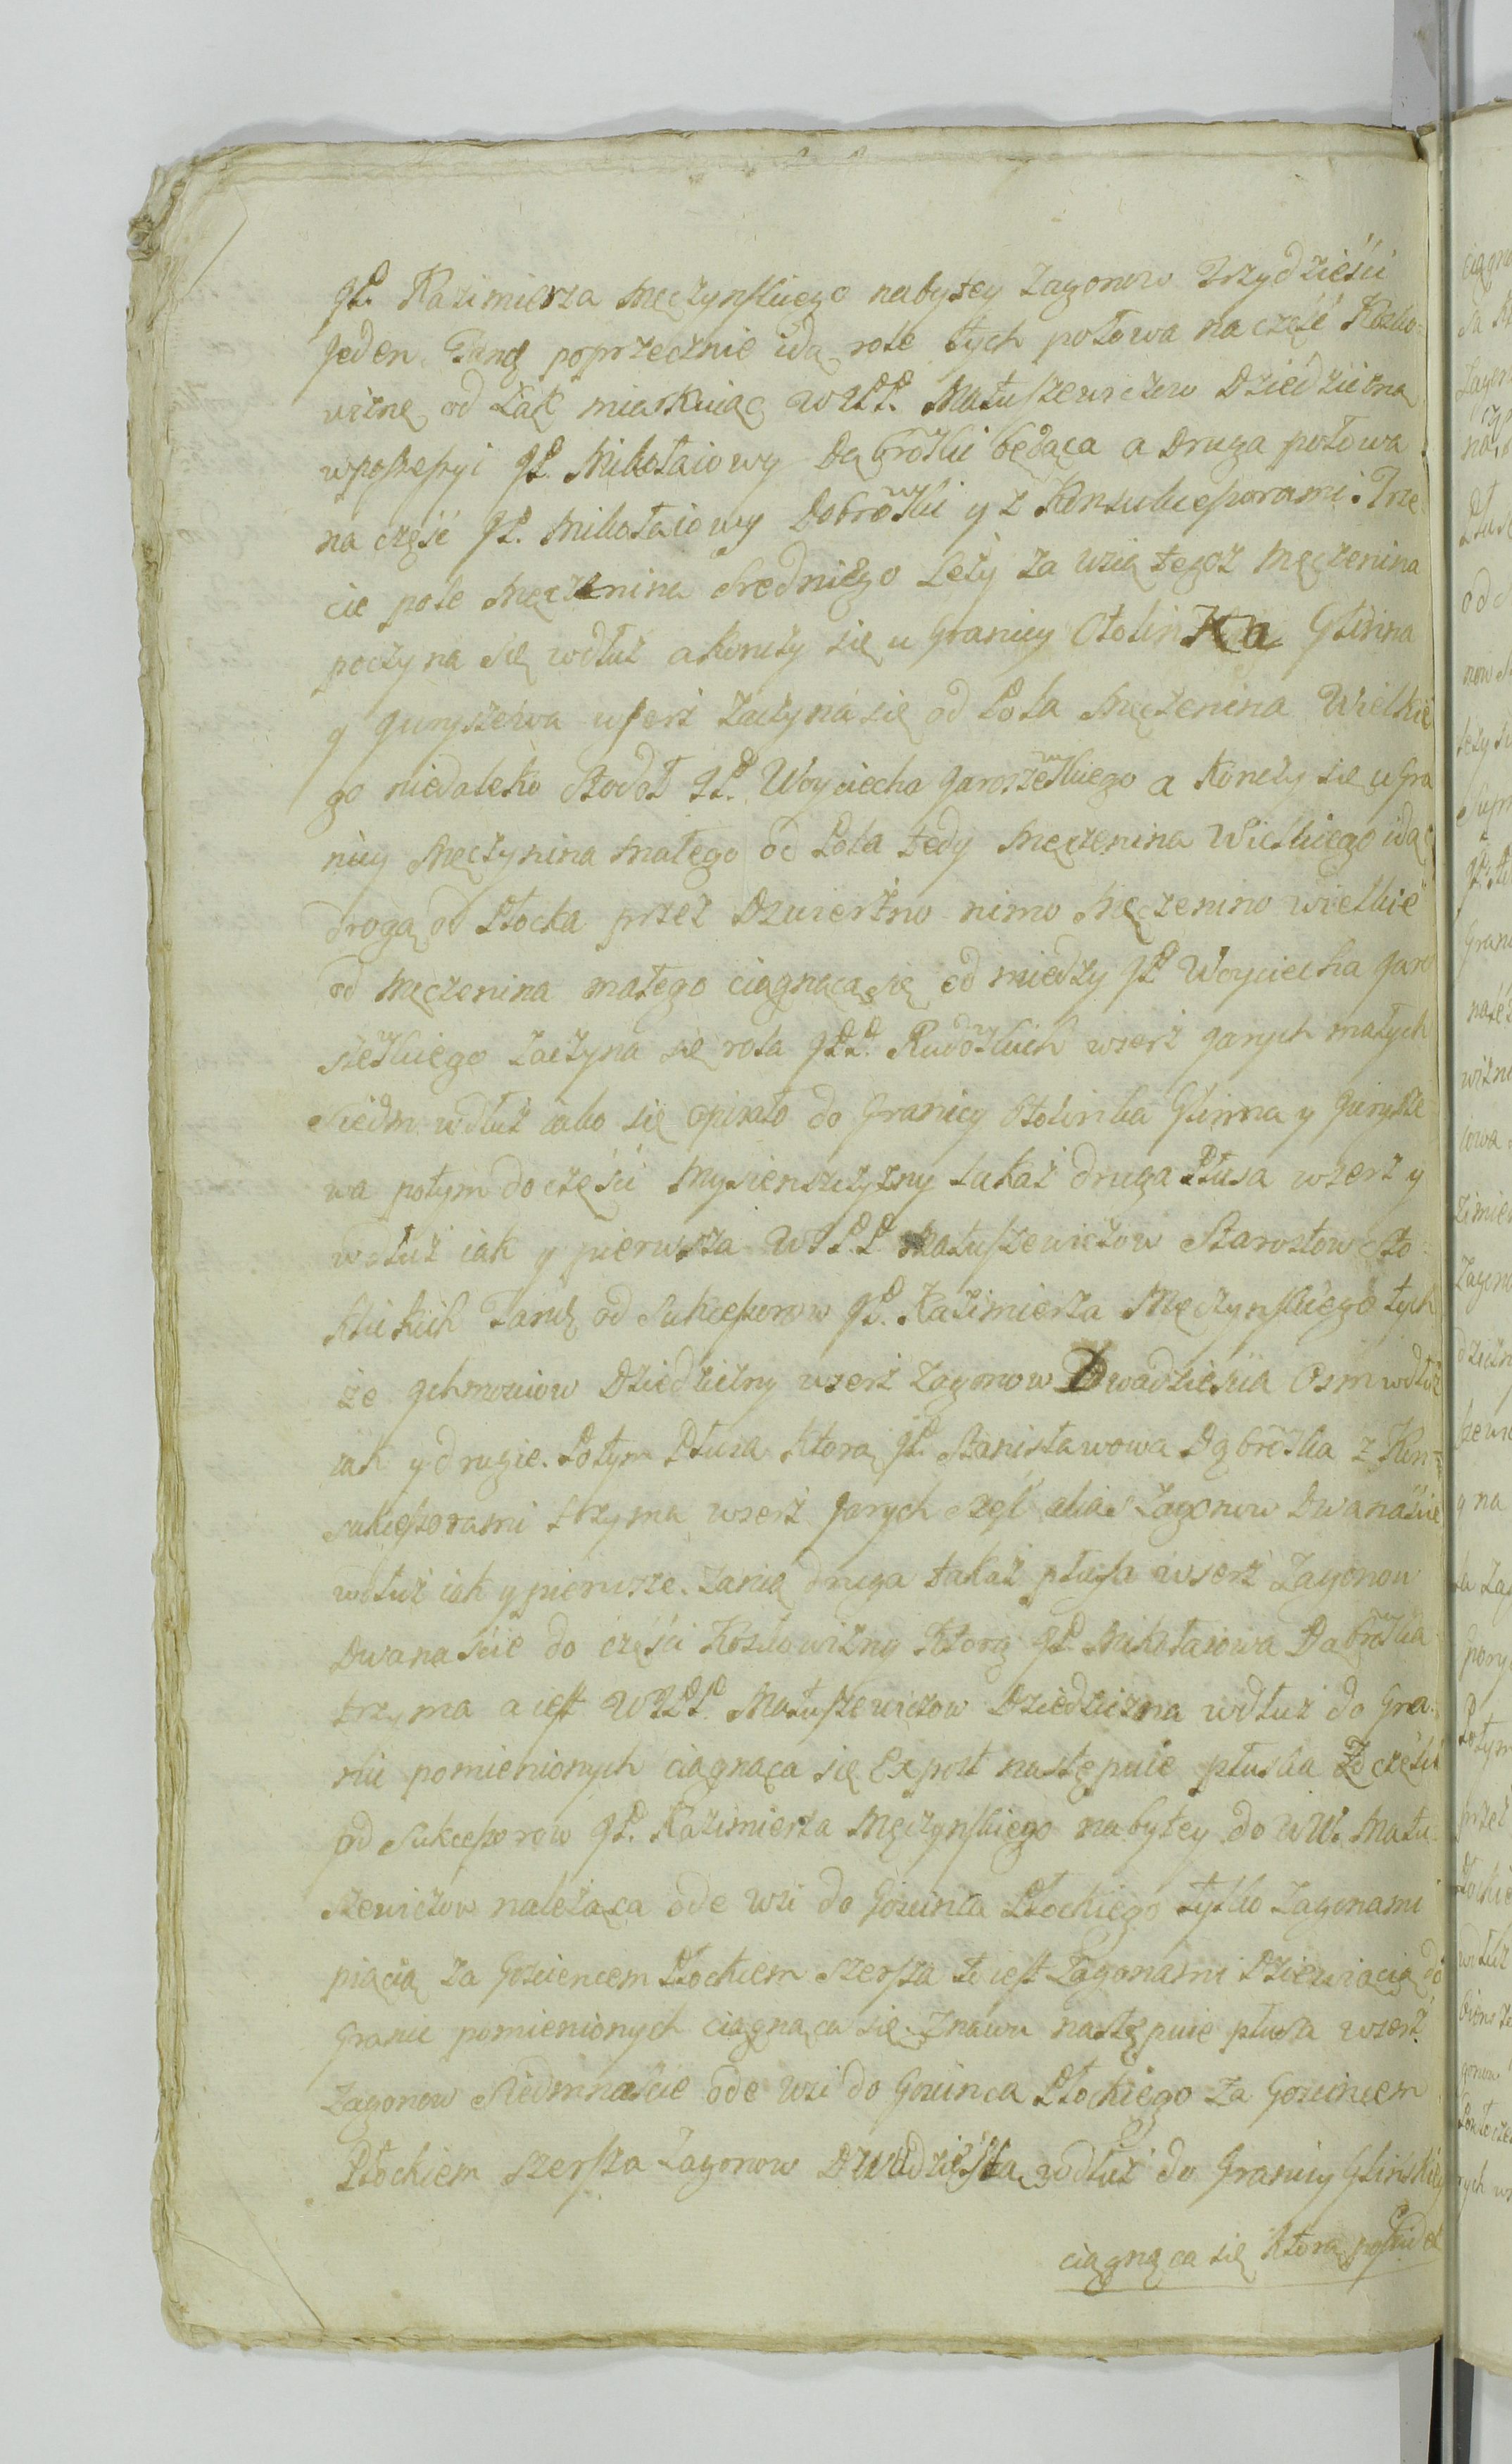 JP. Kazimierza Męczynskiego nabytey Zagonow Trzydzieści
Jeden. Tandę poprzecznie idą role tych połowa na część Kozło-
wiznę od Łąk miarkuiąc WJPP. Matuszewiczow Dziedziczna
w possessyi JP. Mikołaiowy Dąbrowski będąca a Druga połowa
na część JP. Mikołaiowy Dobrowski y z Konsukcessorami. Trze-
cie pole Męczenina Sredniego Leży za wsią tegoż Męczenina
poczyna się wdłuż a konczy się u Granicy Otolinka Glinna
y Guryszewa wszerz zaczyna się od Pola Męczenina Wielkie
go niedaleko Stodoł JP. Woyciecha Garszewskiego a Konczy się u Gra
nicy Męczynina małego od Pola tedy Męczenina Wielkiego idąc
drogą od Płocka przez Dzwierzno nimo Męczenino wielkie
od Męczenina małego ciągnącą się od miedzy JP Woyciecha Garo
szewskiego zaczyna się rola JPP. Rudowskich wszerz garych małych
Siedm wdłuż iako się opisało do Granicy Otolinka Glinna y Gurysze-
wa potym do części Mysienszczyzny takaż druga Płusa wszerz y
wdłuż iak y pierwsza WJPP Matuszewiczow Starostow Sto-
klickich Tandę od Sukcessorow JP. Kazimierza Męczynskiego tych
że Jchmosciow Dziedziczny wszerz zagonow Dwadzieścia Osm wdłuż
iak y drugie. Potym Płusa ktorą JP. Stanisławowa Dąbrowska z Kon-
sukcessorami trzyma wszerz Jarych szesć alias Zagonow Dwanaście
wdłuż iak y pierwsze. Zanią druga takaż płusa wszerz Zagonow
Dwanaście do części Kozłowizny Ktorą JP. Mikołaiowa Dąbrowska
trzyma a iest WJPP. Matuszewiczow Dziedziczna wdłuż do Gra-
nic pomienionych ciągnąca się Expost następuie płuska do części
od Sukcessorow JP. Kazimierza Męczynskiego nabytey do WW. Matu-
szewiczow należąca ode wsi do Goscinca Płockiego tylko Zagonami
piącią za Goscincem Płockiem szersza to iest Zagonami Dziewiącią do
Granic pomienionych ciągnąca się. Znowu następuie płusa wszerz
Zagonow Siedmnaście ode wsi do Goscinca Płockiego za Goscincem
Płockiem szersza Zagonow Dwadzieścia wdłuż do Granicy Glinskiey
ciągnąca się Ktorą possid